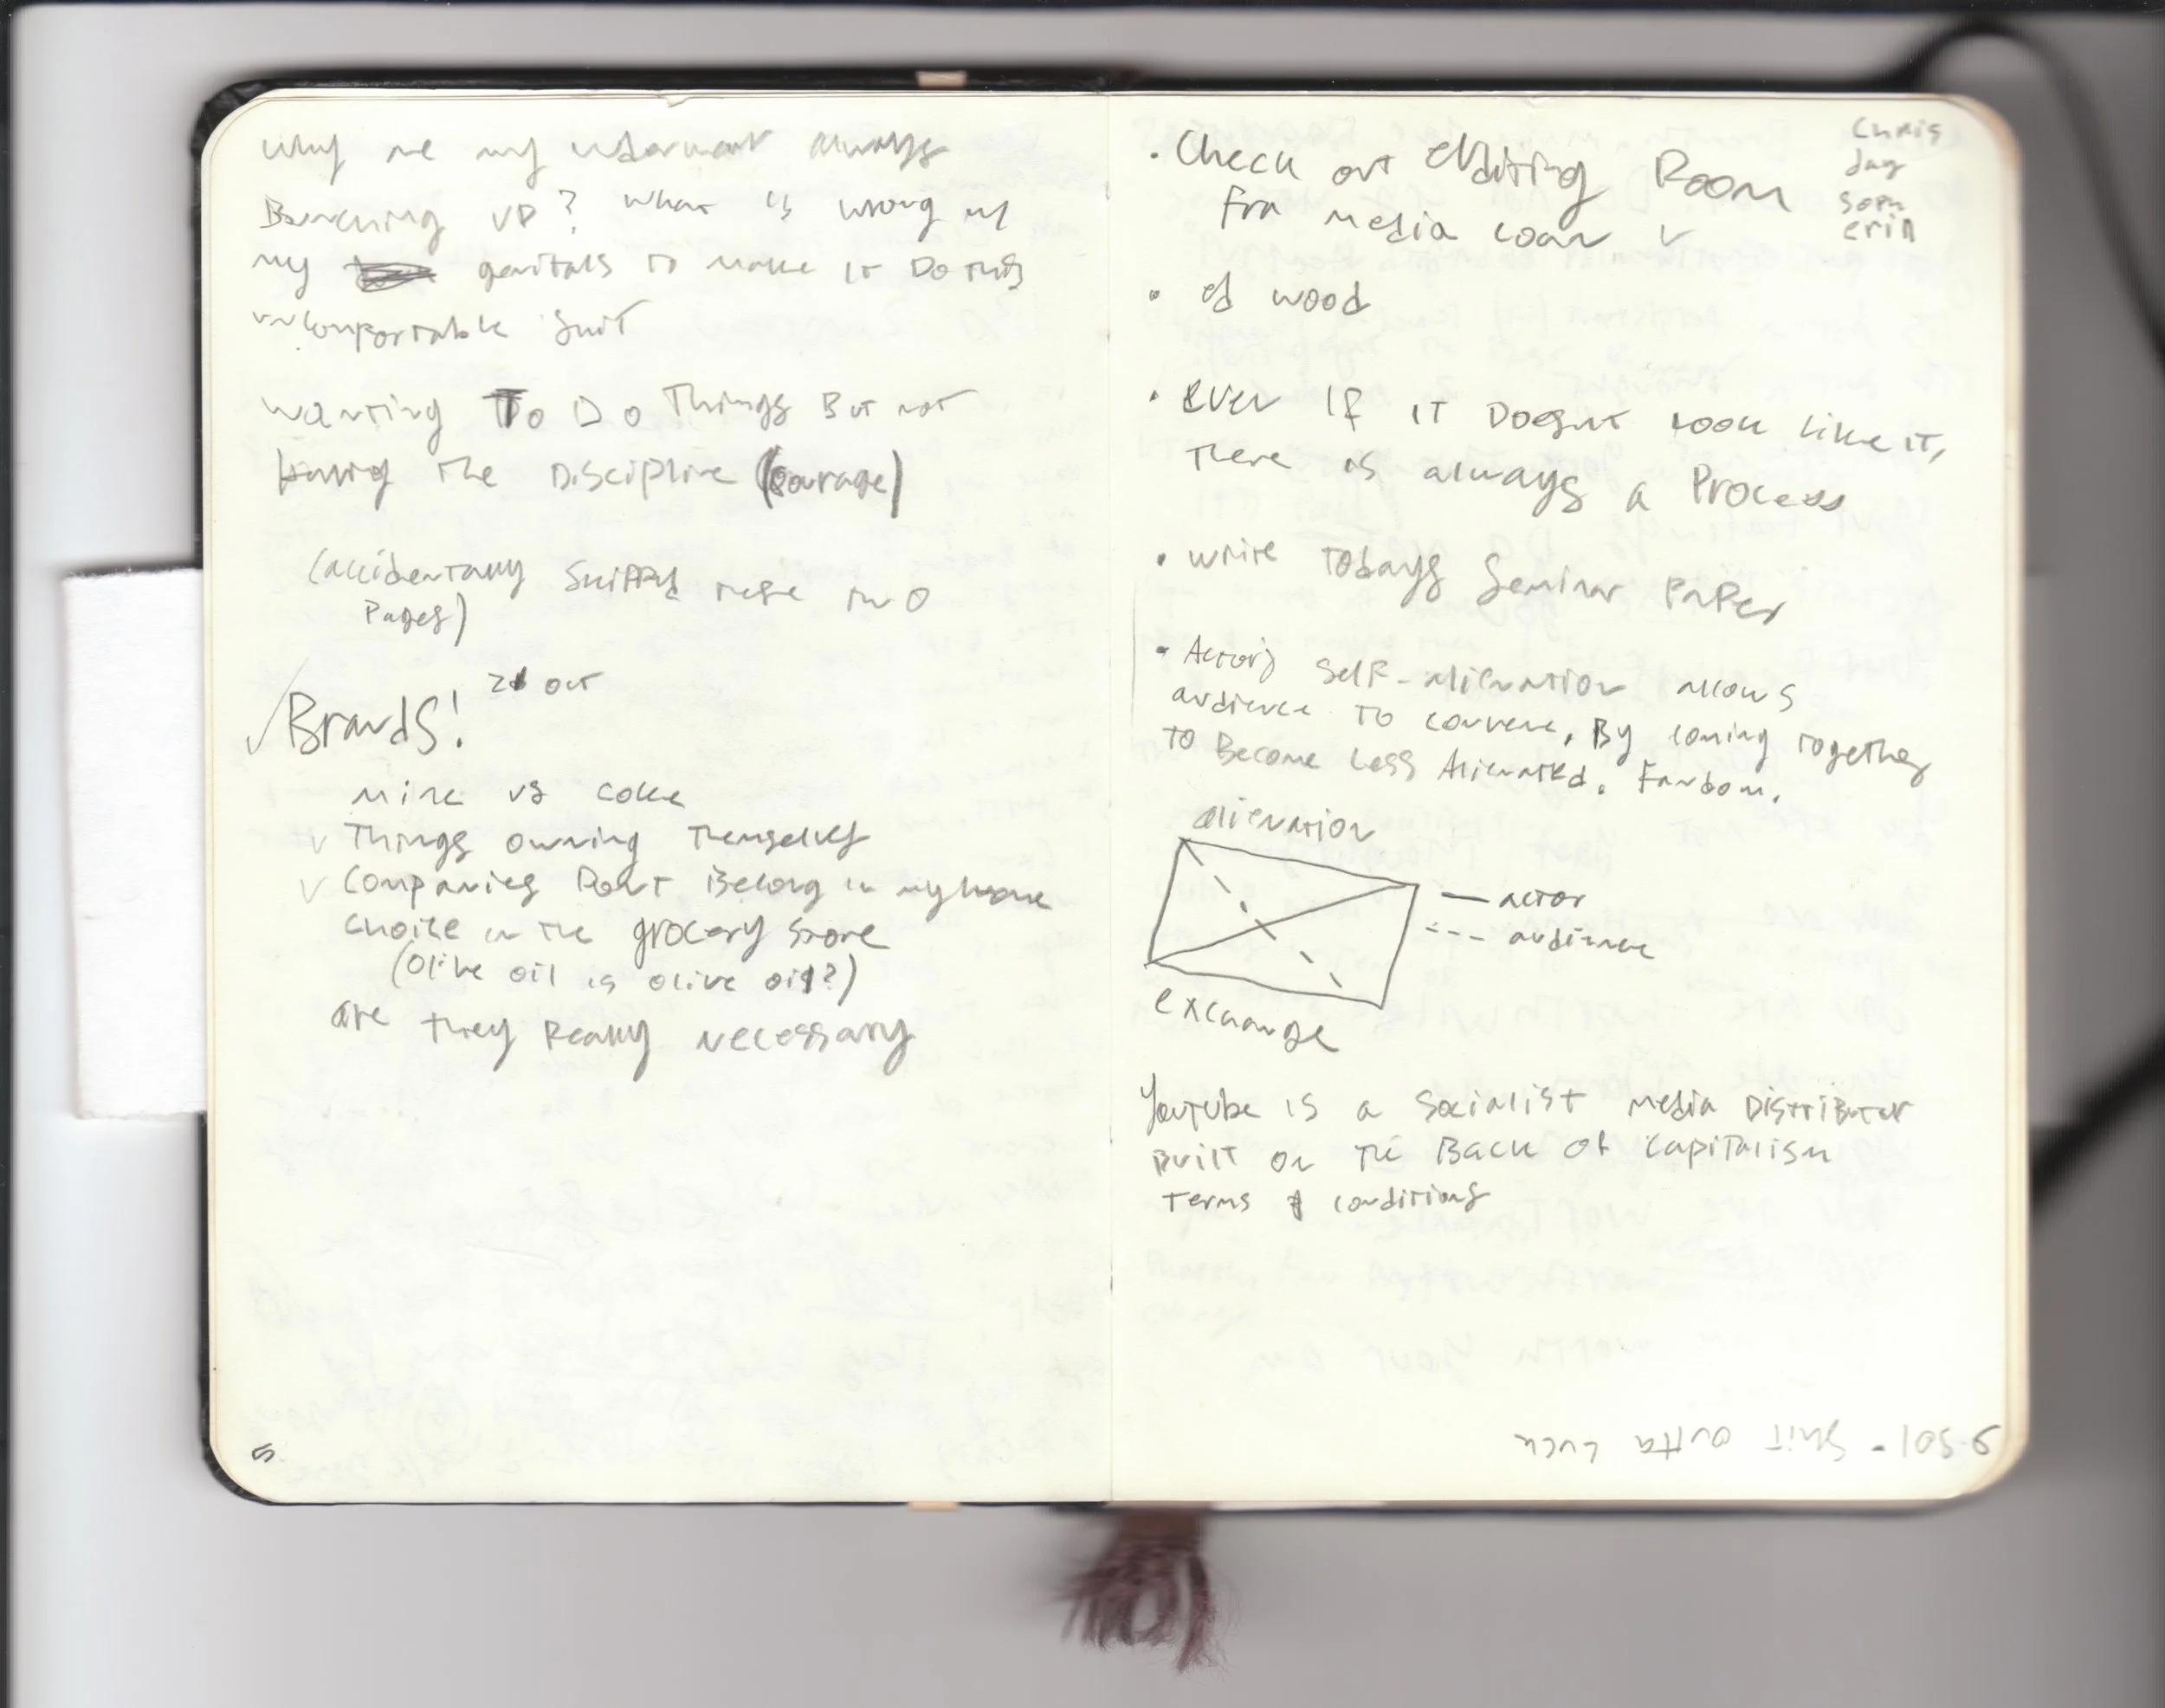 why are my underwear always
Bunching up? what is wrong w/
my genitals to make it Do this
uncomfortable shit
wanting To Do Things But not
Having the Discipline (courage)
(accidentally skipped these two
Pages)
✓ Brands! 21 oct
Nike vs coke
✓ Things owning Themselves
✓ Companies Don't Belong in my home
choice in the grocery store
(olive oil is olive oil?)
are they Really necessary
5
Chris
Jay
Soph
erin
• Check out editing Room
from media loan ✓
• ed wood
• even if it Doesnt look like it,
There is always a Process
• write Todays Seminar Paper
• Actors self-alienation allows
audience to convene, By coming together
to Become Less Alienated. Fandom.
alienation
— actor
--- audience
exchange
Youtube is a socialist media Distributer
Built on the Back of capitalism
terms & conditions
S-O-L - Shit outta Luck